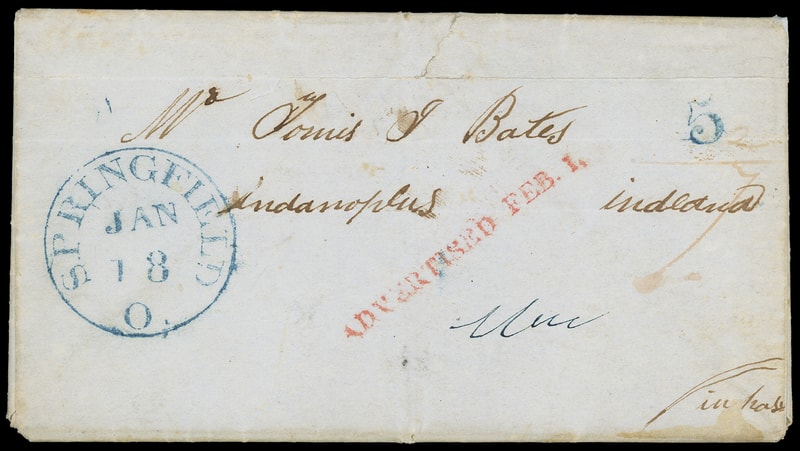 Mr Tomis J Bates
5
indanoplus indland
SPRINGFIELD
JAN
18
O.
ADVERTISED FEB. 1,
in has